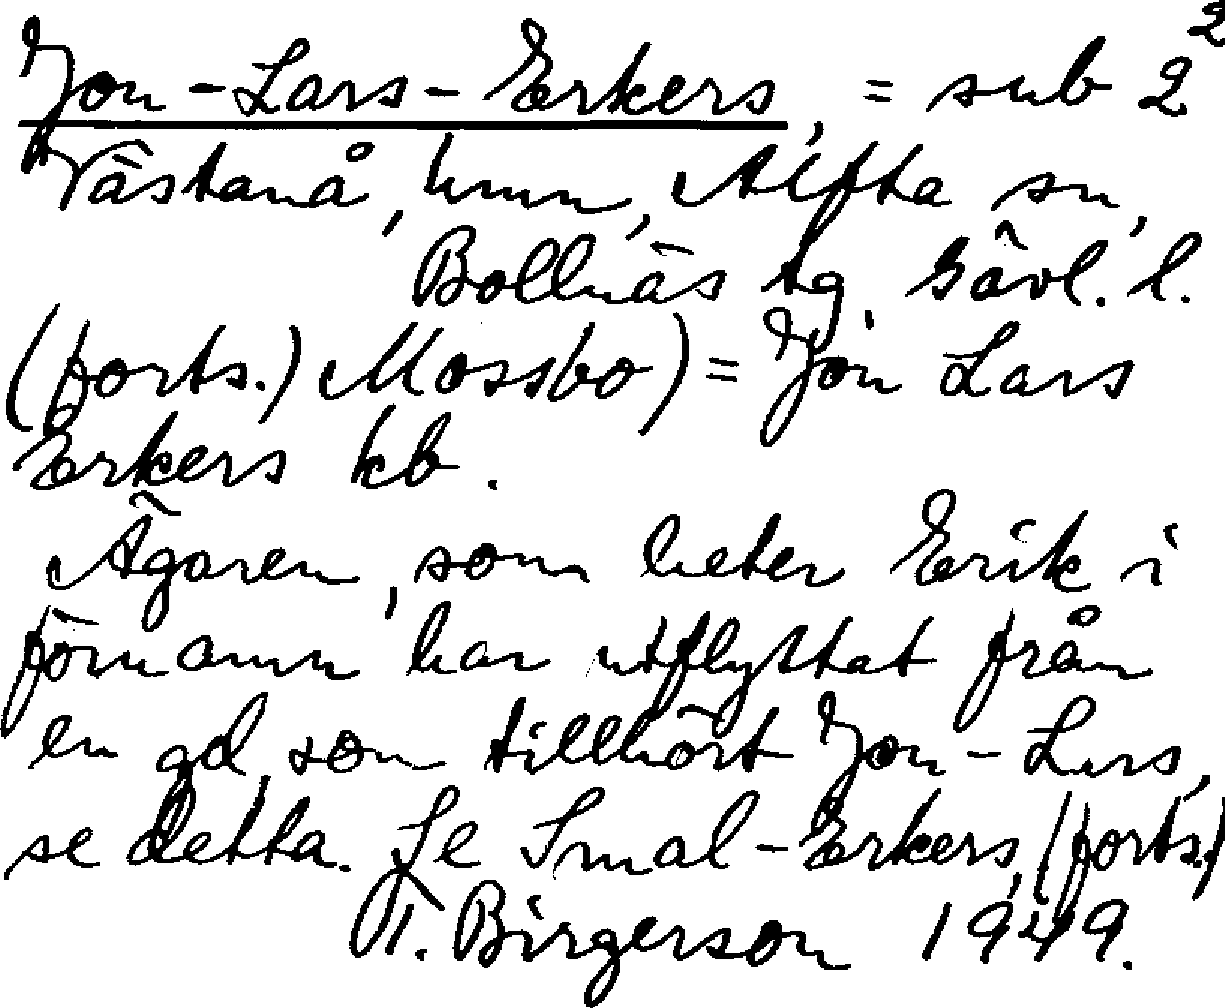 Jon-Lars-Erkers, = sub 2²
Västanå, hmn, Alfta sn,
Bollnäs tg. Gävl. l.
(forts.) Mossbo) = Jon Lars
Erkers kb.
Ägaren, som heter Erik i
förnamn har utflyttat från
en gd, som tillhört Jon-Lars,
se detta. Se Smal-Erkers, (forts.)
T. Birgerson 1949.